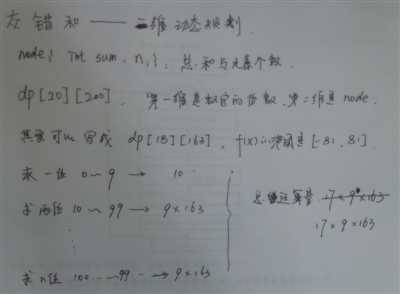 左错和 —— 二维动态规划.
node { int sum, n; }; 总和与元素个数.
dp [20] [200]. 第一维是数字的位数, 第二维是 node.
其实可以写成 dp [18] [163], f(x)的范围是 [-81, 81].
求一位 0~9 → 10
求两位 10~99 → 9×163
⋮
求n位 100…~99… → 9×163
总运算量 17×9×163
17×9×163